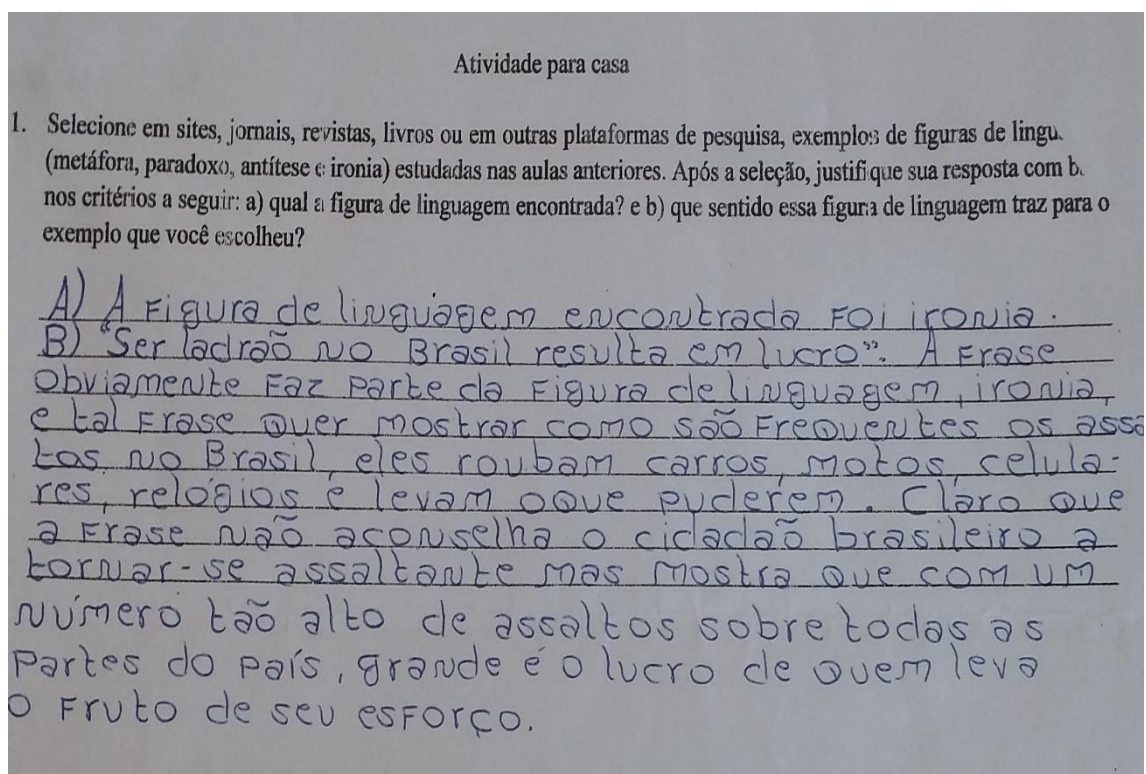 Atividade para casa
1. Selecione em sites, jornais, revistas, livros ou em outras plataformas de pesquisa, exemplos de figuras de lingu
(metáfora, paradoxo, antítese e ironia) estudadas nas aulas anteriores. Após a seleção, justifique sua resposta com b
nos critérios a seguir: a) qual a figura de linguagem encontrada? e b) que sentido essa figura de linguagem traz para o
exemplo que você escolheu?
A) A Figura de linguagem encontrada Foi ironia.
B) "Ser ladraõ no Brasil resulta em lucro". A Frase
Obviamente Faz Parte da Figura de linguagem, ironia,
e tal Frase quer mostrar como saõ Frequentes os assa
tos no Brasil, eles roubam carros, motos, celula-
res, relógios e levam oque puderem. Claro que
a Frase naõ aconselha o cidadaõ brasileiro a
tornar-se assaltante mas mostra que com um
número taõ alto de assaltos sobre todas as
Partes do país, grande é o lucro de quem leva
o Fruto de seu esforço.